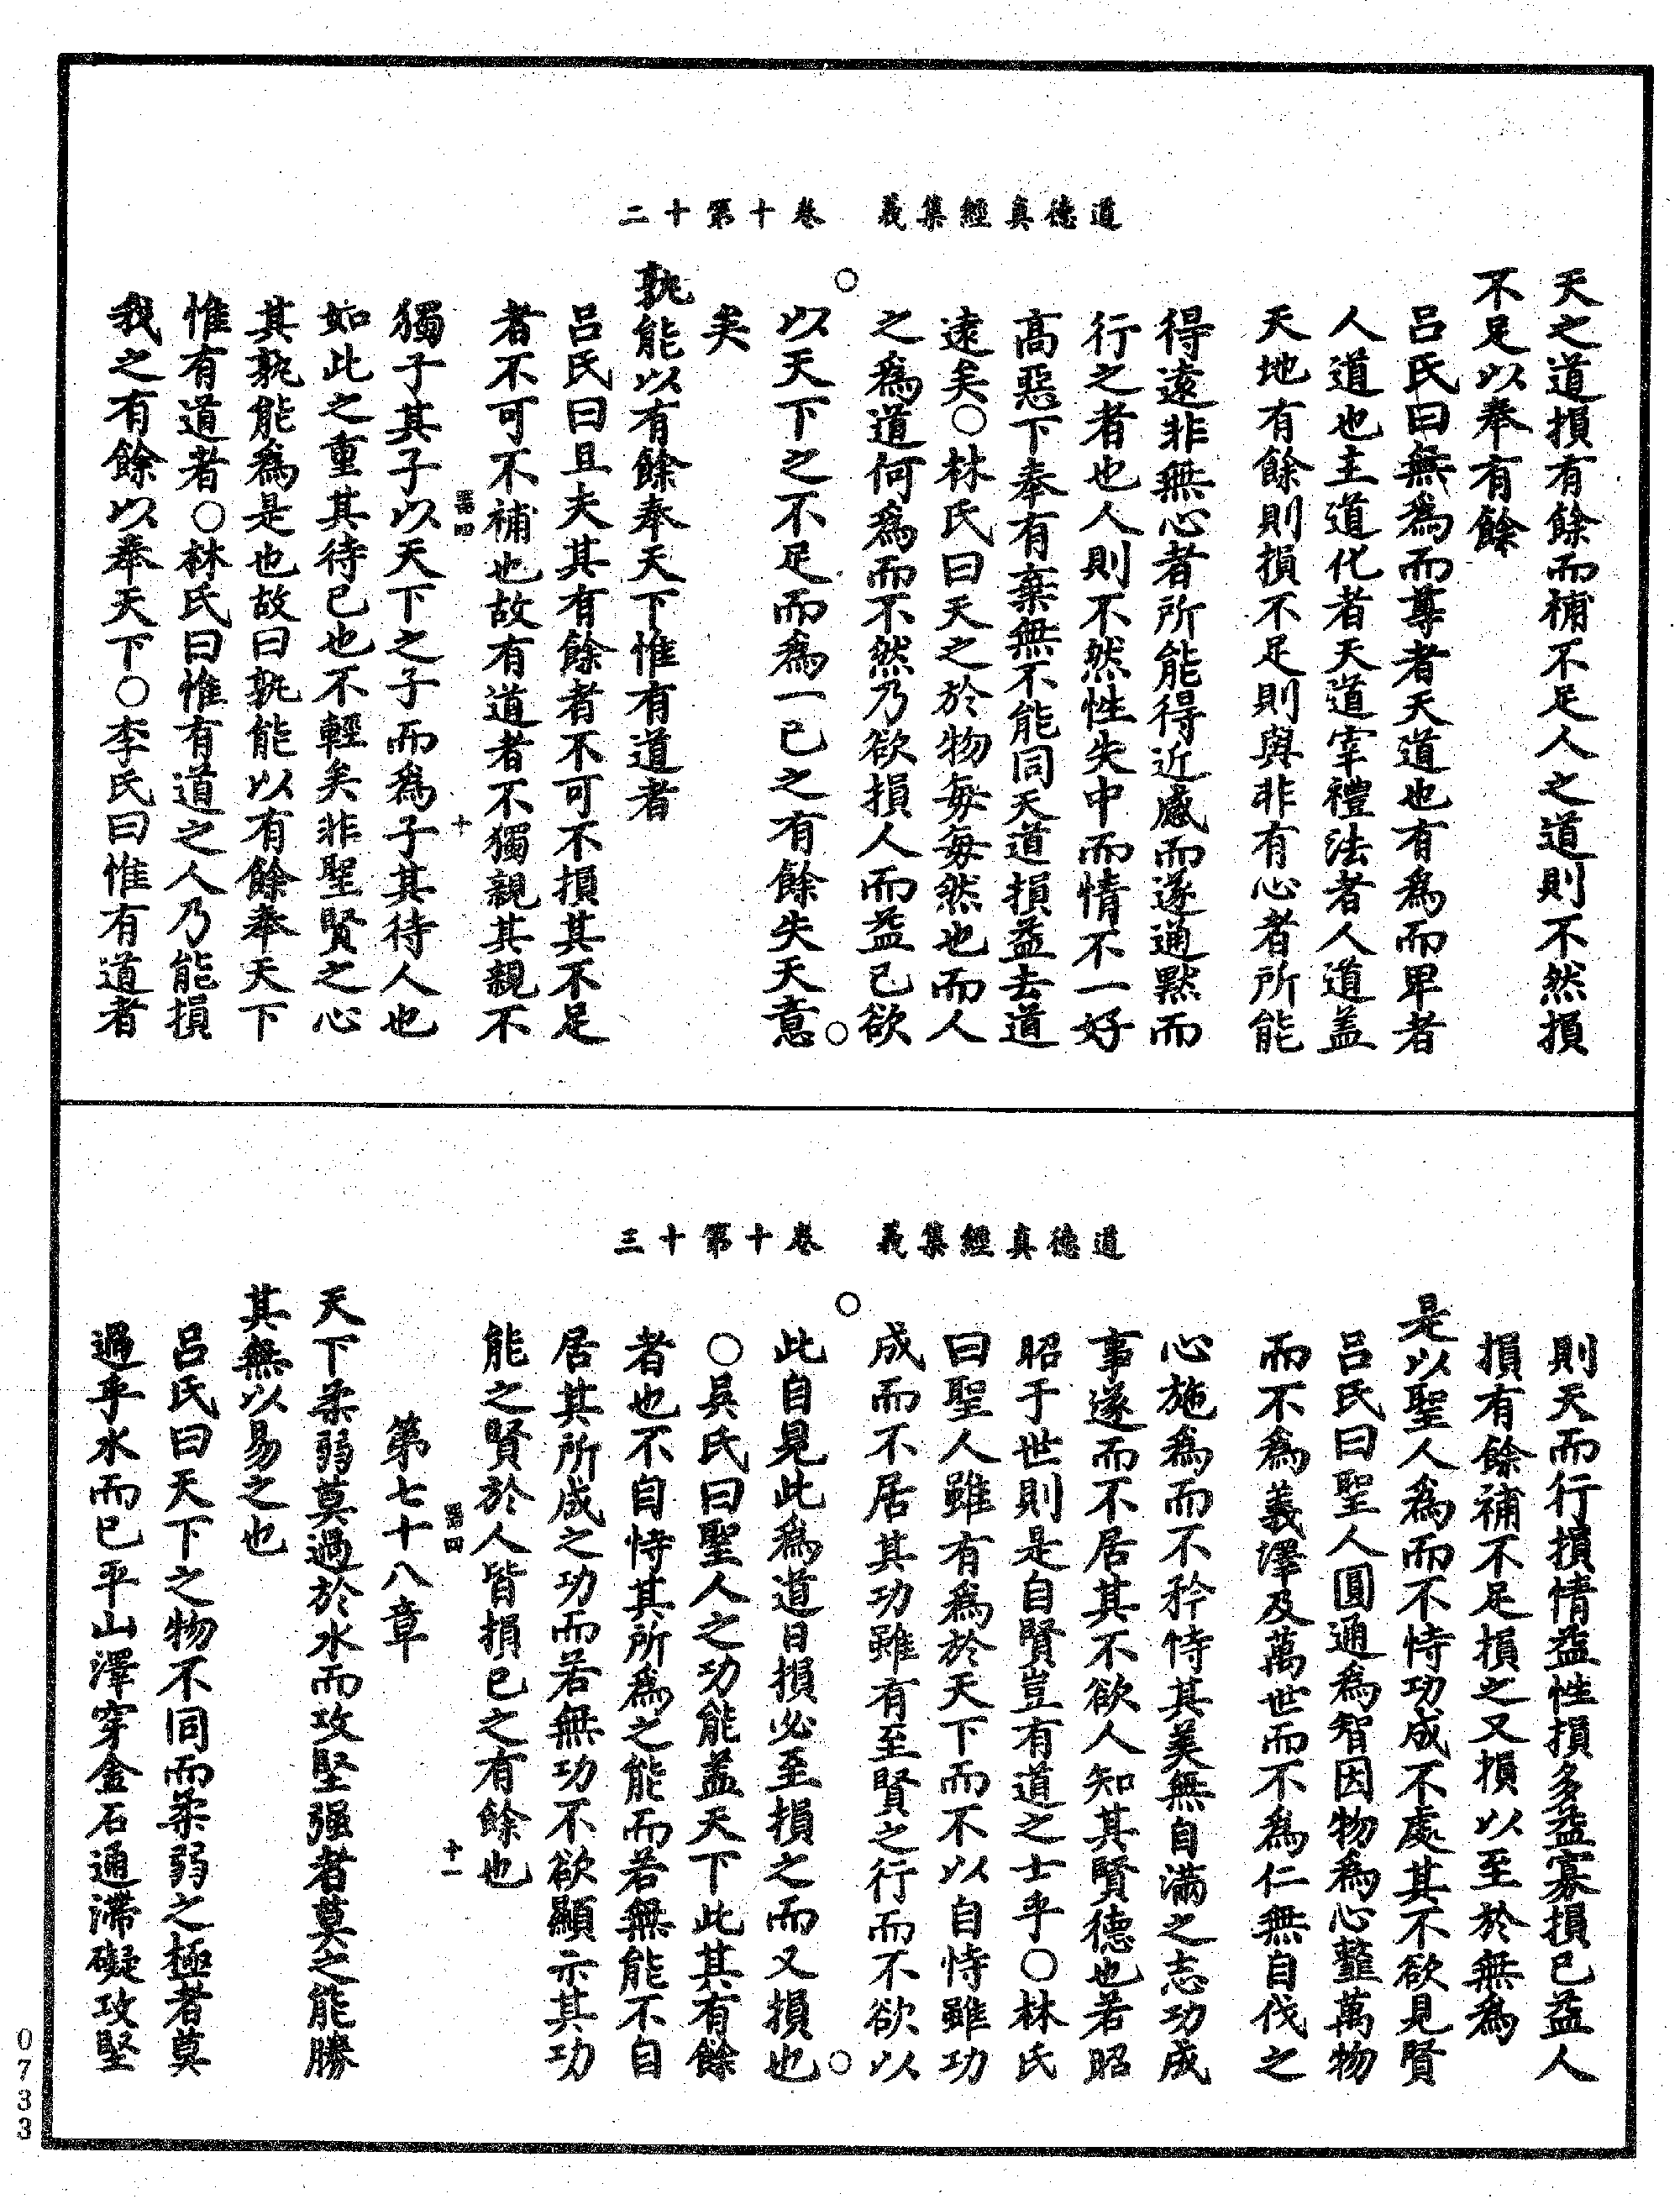 道德真經集義　卷十第十二
天之道損有餘而補不足人之道則不然損
不足以奉有餘
呂氏曰無爲而尊者天道也有爲而卑者
人道也主道化者天道宰禮法者人道盖
天地有餘則損不足則與非有心者所能
得遠非無心者所能得近感而遂通黙而
行之者也人則不然性失中而情不一好
高惡下奉有棄無不能同天道損益去道
遠矣○林氏曰天之於物每每然也而人
之爲道何爲而不然乃欲損人而益己欲
以天下之不足而爲一己之有餘失天意
矣
孰能以有餘奉天下惟有道者
呂氏曰且夫其有餘者不可不損其不足
者不可不補也故有道者不獨親其親不
獨子其子以天下之子而爲子其待人也
如此之重其待己也不輕矣非聖賢之心
其孰能爲是也故曰孰能以有餘奉天下
惟有道者○林氏曰惟有道之人乃能損
我之有餘以奉天下○李氏曰惟有道者
十
道德真經集義　卷十第十三
則天而行損情益性損多益寡損已益人
損有餘補不足損之又損以至於無爲
是以聖人爲而不恃功成不處其不欲見賢
呂氏曰聖人圓通爲智因物爲心虀萬物
而不爲義澤及萬世而不爲仁無自伐之
心施爲而不矜恃其美無自滿之志功成
事遂而不居其不欲人知其賢德也若昭
昭于世則是自賢豈有道之士乎○林氏
曰聖人雖有爲於天下而不以自恃雖功
成而不居其功雖有至賢之行而不欲以
此自見此爲道日損必至損之而又損也
○吳氏曰聖人之功能盖天下此其有餘
者也不自恃其所爲之能而若無能不自
居其所成之功而若無功不欲顯示其功
能之賢於人皆損已之有餘也
第七十八章
十一
天下柔弱莫過於水而攻堅强者莫之能勝
其無以易之也
呂氏曰天下之物不同而柔弱之極者莫
過乎水而已平山澤穿金石通滯礙攻堅
0733